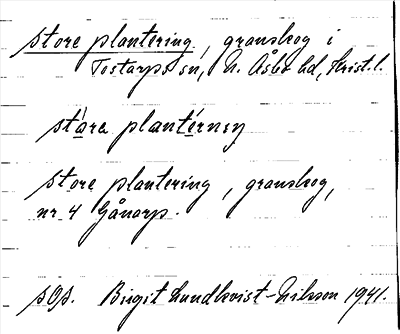 store plantering, granskog i
Tostarps sn, N. Åsbo hd, Krist. l.
stòra planté́rnɩŋ
store plantering, granskog,
nr 4 Gånarp.
sOp. Birgit Lundkvist-Nilsson 1941.